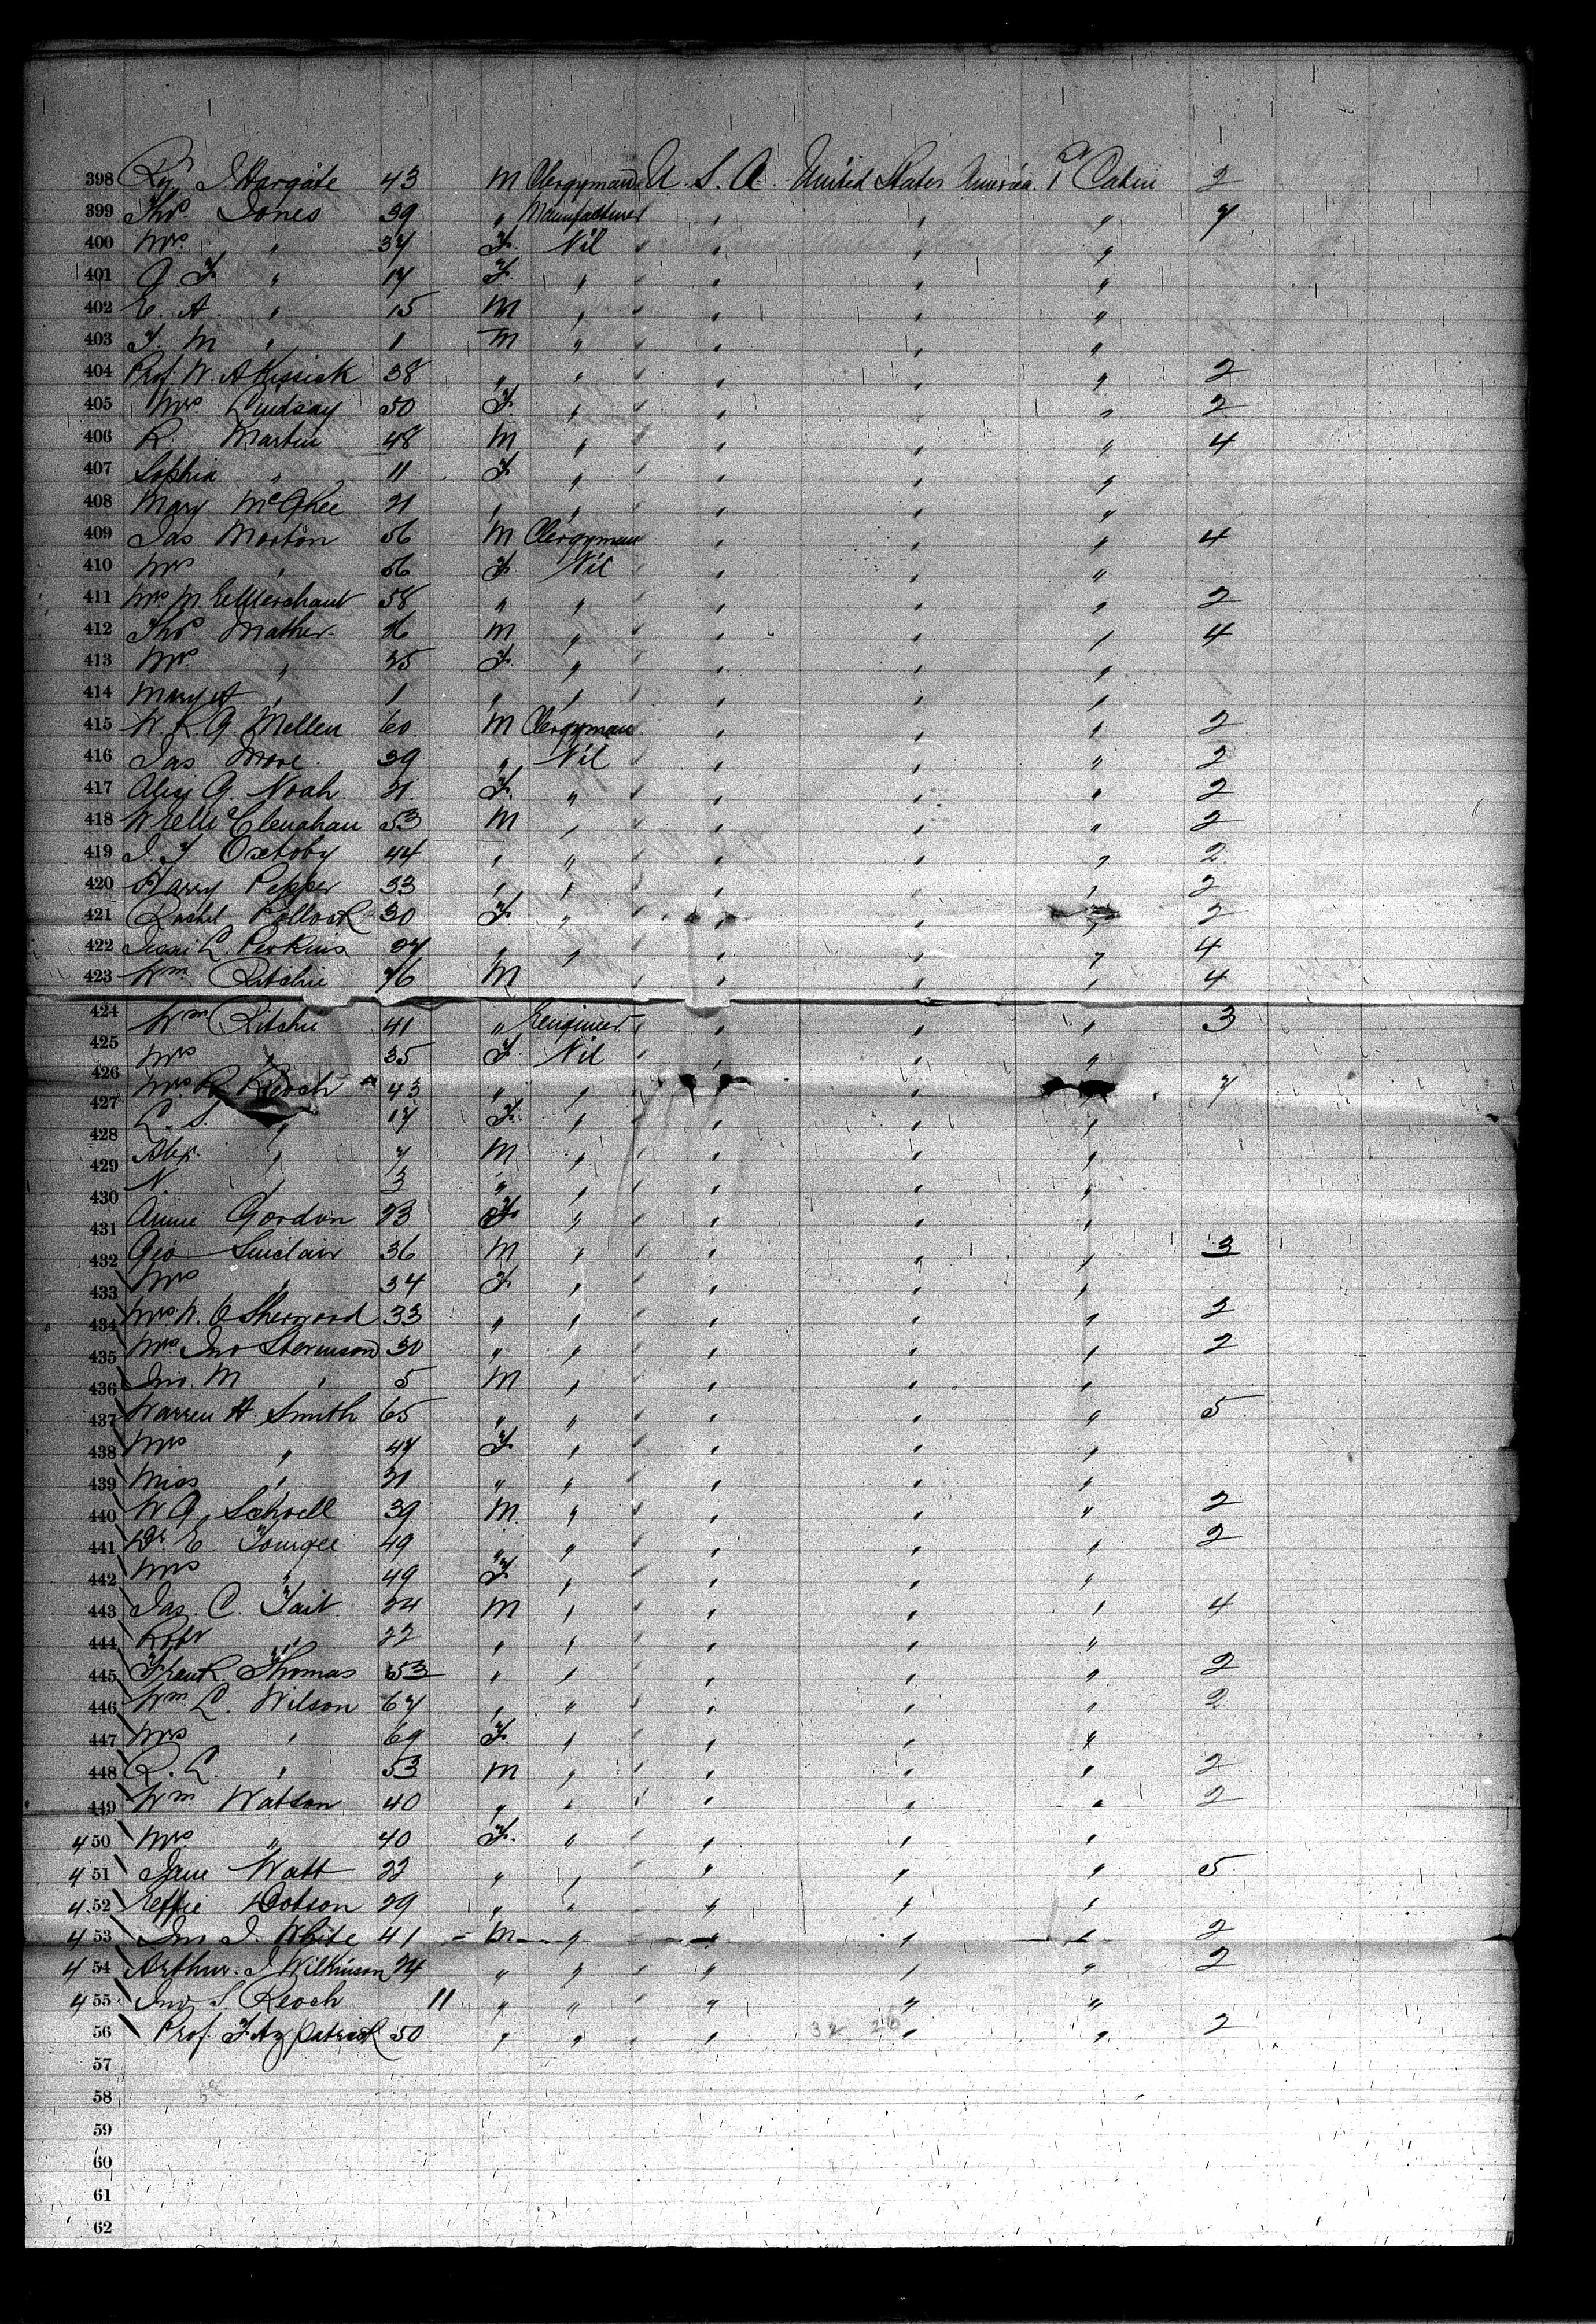 398 J Hargate 43 M Clergyman U. S. A. United States America 1st Cabin 2
399 Thos. Jones 39 " Manufacturer " " " 7
400 Mrs. " 37 F. Nil " " "
401 F " 17 F. " " " "
402 E. A. " 15 M " " " "
403 F. M " 1 M " " " "
404 Prof. W. A Kissick 38 " " " " " 2
405 Mrs. Lindsay 50 F. " " " " 2
406 R. Martin 48 M " " " " 4
407 Sophia " 11 F " " " "
408 Mary McGhee 21 " " " " "
409 Jas Morton 56 M Clergyman " " " 4
410 Mrs " 56 F. Nil " " "
411 Mrs M. E Merchant 58 " " " " " 2
412 Thos Mather 26 M " " " " 4
413 Mrs. " 25 F. " " " "
414 Mary A " 1 " " " " "
415 W. L. G. Mellen 60 M Clergyman " " " 2
416 Jas More 39 " Nil " " " 2
417 Alice G. Noah 31 F. " " " " 2
418 Clenahan 53 M " " " " 2
419 J. T Oxtoby 44 " " " " " 2
420 Harry Pepper 33 " " " " " 2
421 Rachel Pollock 30 F. " " " " 2
422 Jessie L. Perkins 27 " " " " " 4
423 Wm Ritchie 76 M " " " 4
424 Wm Ritchie 41 " Engineer " " " 3
425 Mrs " 35 F. Nil " " "
426 Mrs R. Keoch 43 " " " " " 7
427 C. S. " 17 F. " " " "
428 Alex. " 7 M " " " "
429 N. " 3 " " " " "
430 Annie Gordon 23 F. " " " "
431 Geo Sinclair 36 M " " " " 3
432 Mrs " 34 F. " " " "
433 Mrs. W. C Sherwood 33 " " " " " 2
434 Mrs. Jno Stevenson 30 " " " " " 2
435 Jno. M " 5 M " " " "
436 Warren H. Smith 65 " " " " " 5
437 Mrs " 47 F. " " " "
438 Miss " 21 " " " " "
439 W G. Schoell 39 M. " " " " 2
440 Dr E. Tourgee 49 " " " " " 2
441 Mrs " 49 F. " " " "
442 Jas. C. Tait 24 M " " " " 4
443 Robt " 22 " " " " "
444 Frank Thomas 53 " " " " " 2
445 Wm. L. Wilson 67 " " " " " 2
446 Mrs " 69 F. " " " "
447 R. L. " 53 M " " " " 2
448 Wm Watson 40 " " " " " 2
449
450 Mrs. " 40 F. " " " "
451 Jane Watt 22 " " " " " 5
452 Effie Dobson 29 " " " " "
453 Jno J. White 41 M " " " " 2
454 Arthur. J Wilkinson 24 " " " " " 2
455 Jno S. Keoch 11 " " " " "
56 Prof. Fitzpatrick 50 " " " 32 26 " " 2
57
58
59
60
61
62